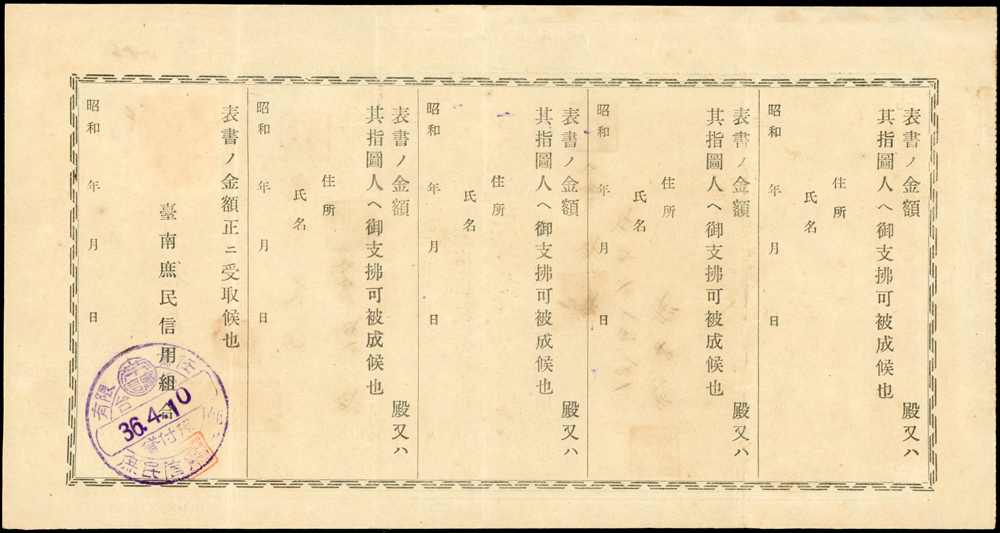 表書ノ金額　殿又ハ
其指圖人ヘ御支拂可被成候也
住所
氏名
昭和　年　月　日
表書ノ金額　殿又ハ
其指圖人ヘ御支拂可被成候也
住所
氏名
昭和　年　月　日
表書ノ金額　殿又ハ
其指圖人ヘ御支拂可被成候也
住所
氏名
昭和　年　月　日
表書ノ金額　殿又ハ
其指圖人ヘ御支拂可被成候也
住所
氏名
昭和　年　月　日
表書ノ金額正ニ受取候也
臺南庶民信用組合
昭和　年　月　日
有限
36.4.10
貸付係
庶民信